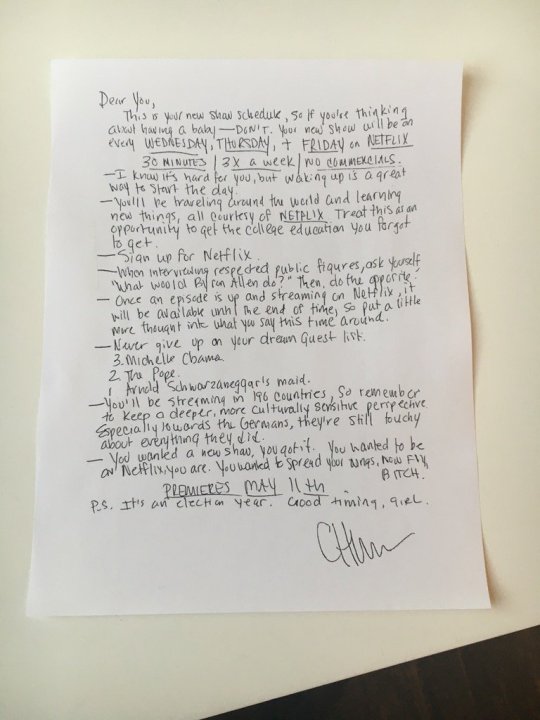 Dear You,
This is your new show schedule, so if you're thinking
about having a baby—DON'T. Your new show will be on
every WEDNESDAY, THURSDAY, + FRIDAY on NETFLIX
30 MINUTES | 3X a week | NO COMMERCIALS.
—I know it's hard for you, but waking up is a great
way to start the day.
—You'll be traveling around the world and learning
new things, all courtesy of NETFLIX. Treat this as an
opportunity to get the college education you forgot
to get.
—Sign up for Netflix.
—When interviewing respected public figures, ask yourself
"What would Byron Allen do?" Then, do the opposite.
— Once an episode is up and streaming on Netflix, it
will be available until the end of time, so put a little
more thought into what you say this time around.
—Never give up on your dream Guest list.
3. Michelle Obama
2. The Pope
1. Arnold Schwarzaneggar's maid.
—You'll be streaming in 190 countries, so remember
to keep a deeper, more culturally sensitive perspective
Especially towards the Germans, they're still touchy
about everything they did.
— You wanted a new show, you got it. You wanted to be
on Netflix, you are. You wanted to spread your wings, now FLY,
BITCH.
PREMIERES MAY 11th.
P.S. It's an election year. Good timing, girl.